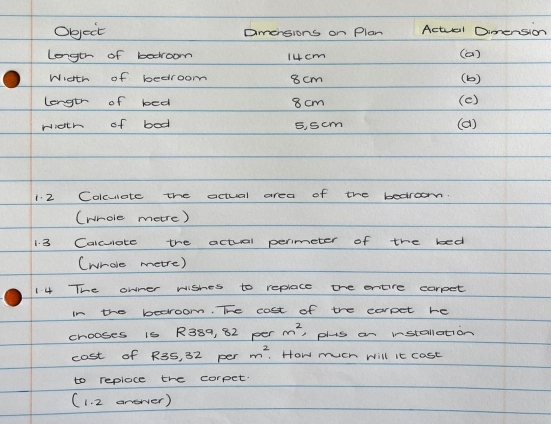 Object Dimensions on Plan Actual Dimension
Length of bedroom 14cm (a)
Width of bedroom 8cm (b)
Length of bed 8cm (c)
Width of bed 5,5cm (d)
1.2 Calculate the actual area of the bedroom.
(whole metre)
1.3 Calculate the actual perimeter of the bed
(whole metre)
1.4 The owner wishes to replace the entire carpet
in the bedroom. The cost of the carpet he
chooses is R389,82 per m², plus an installation
cost of R35,32 per m². How much will it cost
to replace the carpet.
(1.2 answer)